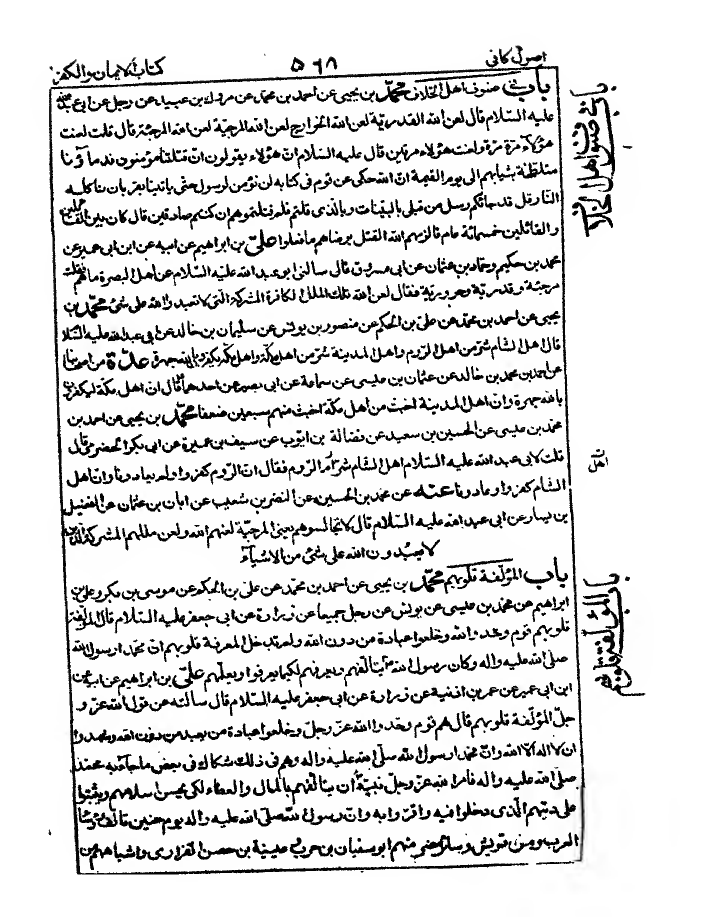 اصول كافى
٥٦٨
كتاب الايمان والكفر
باب فى صنوف اهل الخلاف
باب فى صنوف اهل الخلاف محمد بن يحيى عن احمد بن محمد عن مروك بن عبيد عن رجل عن ابى عبد الله
عليه السلام قال لعن الله القدرية لعن الله الخوارج لعن الله المرجئة لعن الله المرجئة قال قلت لعنت
هؤلاء مرة مرة ولعنت هؤلاء مرتين قال عليه السلام ان هؤلاء يقولون ان قتلتنا مؤمنون فدماؤنا
متلطخة بثيابهم الى يوم القيمة ان الله حكى عن قوم فى كتابه لن نؤمن لرسول حتى ياتينا بقربان تاكله
النار قل قد جائكم رسل من قبلى بالبينات وبالذى قلتم فلم قتلتموهم ان كنتم صادقين قال كان بين القاتلين
والقائلين خمسمائة عام فالزمهم الله القتل برضاهم ما فعلوا على بن ابراهيم عن ابيه عن ابن ابى عمير عن
محمد بن حكيم وحماد بن عثمان عن ابى مسروق قال سالنى ابو عبد الله عليه السلام عن اهل البصرة ما هم فقلت
مرجئة وقدرية وحرورية فقال لعن الله تلك الملل الكافرة المشركة التى لا تعبد الله على شئ محمد بن
يحيى عن احمد بن محمد عن على بن الحكم عن منصور بن يونس عن سليمان بن خالد عن ابى عبد الله عليه السلام
قال اهل الشام شر من اهل الروم واهل المدينة شر من اهل مكة واهل مكة يكفرون بالله جهرة عدة من اصحابنا
عن احمد بن محمد بن خالد عن عثمان بن عيسى عن سماعة عن ابى بصير عن احدهما قال ان اهل مكة ليكفرون
بالله جهرة وان اهل المدينة اخبث من اهل مكة اخبث منهم سبعين ضعفا محمد بن يحيى عن احمد بن
محمد بن عيسى عن الحسين بن سعيد عن فضالة بن ايوب عن سيف بن عميرة عن ابى بكر الحضرمى قال
قلت لابى عبد الله عليه السلام اهل الشام شر ام الروم فقال ان الروم كفروا ولم يعادونا وان اهل
اهل
الشام كفروا وعادونا عنه عن محمد بن الحسين عن النضر بن شعيب عن ابان بن عثمان عن الفضيل
بن يسار عن ابى عبد الله عليه السلام قال لا تجالسوهم يعنى المرجئة لعنهم الله ولعن مللهم المشركة الذين
لا يعبدون الله على شئ من الاشياء
باب المؤلفة قلوبهم
باب المؤلفة قلوبهم محمد بن يحيى عن احمد بن محمد عن على بن الحكم عن موسى بن بكر وعلى بن
ابراهيم عن محمد بن عيسى عن يونس عن رجل جميعا عن زرارة عن ابى جعفر عليه السلام قال المؤلفة
قلوبهم قوم وحدوا الله وخلعوا عبادة من دون الله ولم تدخل المعرفة قلوبهم ان محمدا رسول الله
صلى الله عليه واله وكان رسول الله يتألفهم ويعرفهم لكيما يعرفوا ويعلمهم على بن ابراهيم عن ابيه عن
ابن ابى عمير عن عمر بن اذينة عن زرارة عن ابى جعفر عليه السلام قال سالته عن قول الله عز و
جل المؤلفة قلوبهم قال هم قوم وحدوا الله عز وجل وخلعوا عبادة من يعبد من دون الله وشهدوا
ان لا اله الا الله وان محمدا رسول الله صلى الله عليه واله وهم فى ذلك شكاك فى بعض ما جاء به محمد
صلى الله عليه واله فامر الله عز وجل نبيه ان يتألفهم بالمال والعطاء لكى يحسن اسلامهم ويثبتوا
على دينهم الذى دخلوا فيه واقروا به وان رسول الله صلى الله عليه واله يوم حنين تألف رؤساء
العرب ومن قريش وسائر مضر منهم ابو سفيان بن حرب وعيينة بن حصن الفزارى واشباههم من